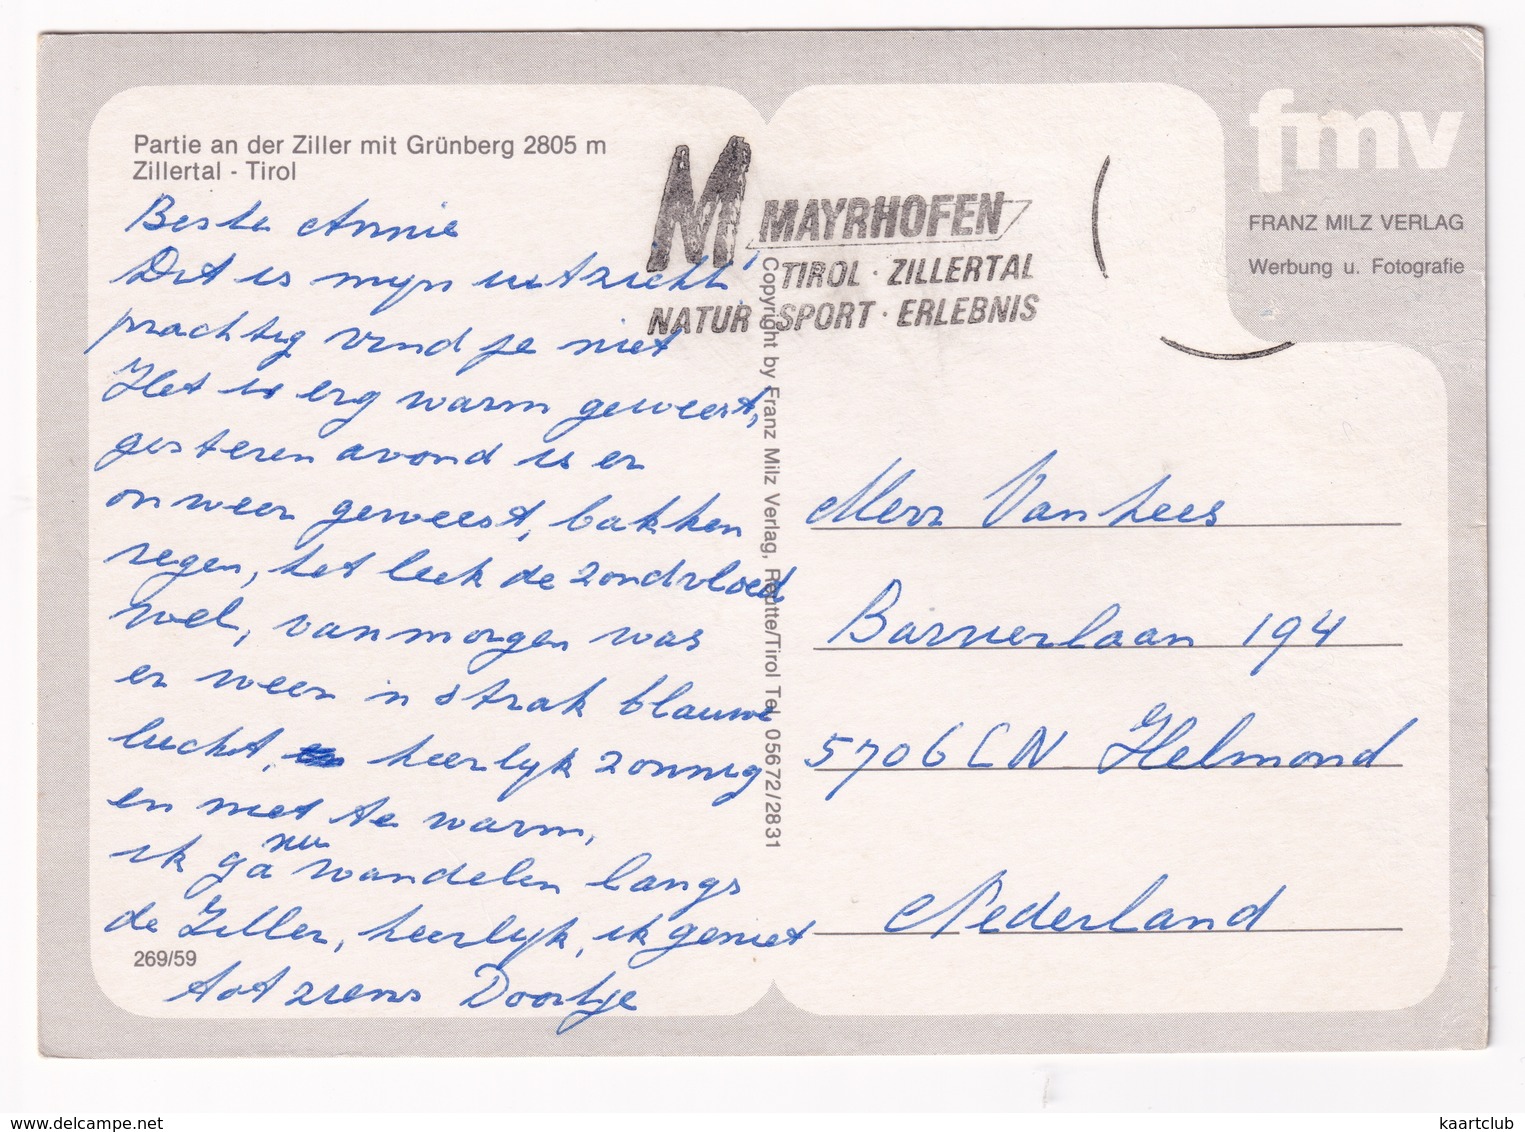 Partie an der Ziller mit Grünberg 2805 m
Zillertal - Tirol
Beste Annie
Dit is mijn uitzicht,
prachtig vind je niet
Het is erg warm geweest,
gisteren avond is er
onweer geweest, bakken
regen, het leek de zondvloed
wel, vanmorgen was
er weer 'n strak blauwe
lucht, heerlijk zonnig
en niet te warm,
ik ga nu wandelen langs
de Ziller, heerlijk, ik geniet
tot ziens Doortje
269/59
M MAYRHOFEN
TIROL · ZILLERTAL
NATUR · SPORT · ERLEBNIS
Copyright by Franz Milz Verlag, Reutte/Tirol Tel. 05672/2831
fmv
FRANZ MILZ VERLAG
Werbung u. Fotografie
Mevr Van Lees
Barrierlaan 194
5706 CN Helmond
Nederland
kaartclub
delcampe.net